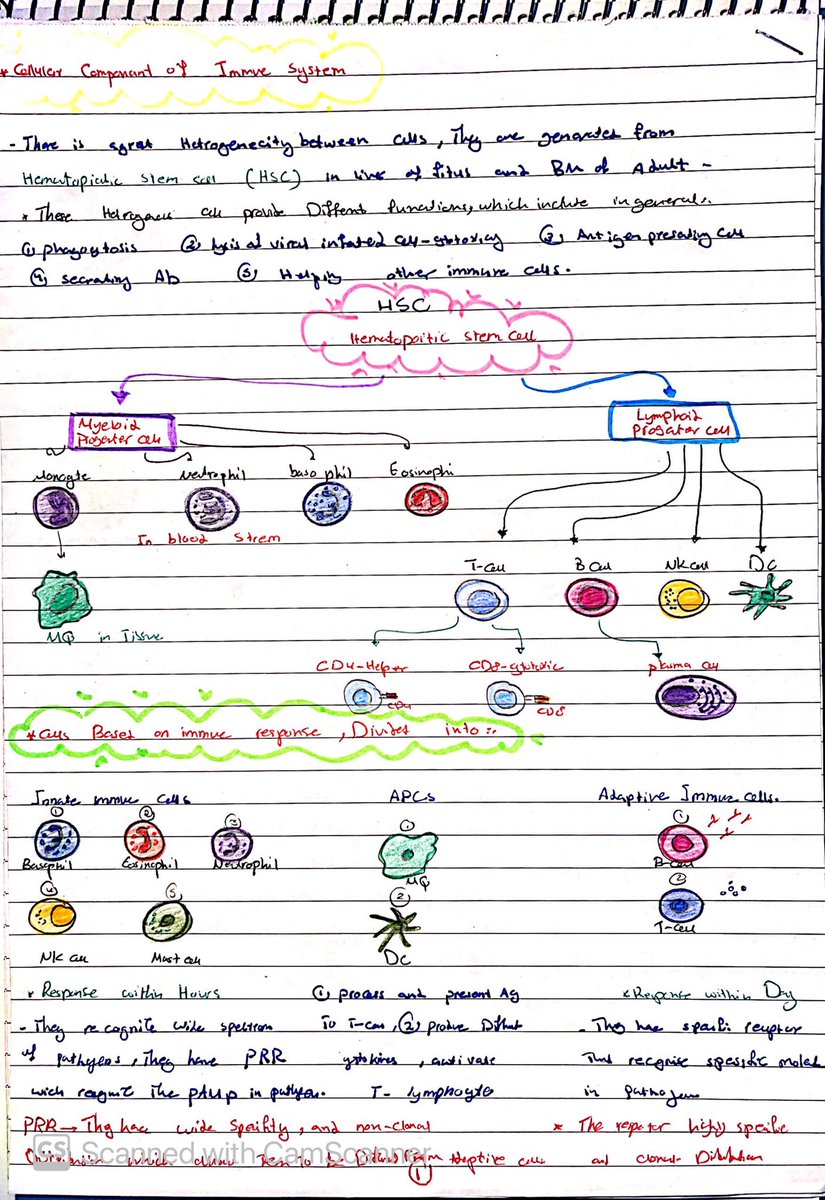 *Cellular Componant of Immue System
- There is agreat Hetrogenecity between cells, They are generated from
Hematopiatic stem cell (HSC) in liver of fitus and BM of Adult -
* These Hetrogenous cell provide Diffent functions, which include in general:.
① phagoytosis ② lysis of viral infated cell-cytotoxicy ③ Antigen presating cell
④ secrating Ab ⑤ Helping other immue cells.
HSC
Hematopoitic stem cell
Myeloid
Progenter cell
Lymphoid
Progenter cell
Monocyte Neutrophil basophil Eosinophi
In blood Strem
T-Cell B Cell NK cell DC
MQ in Tissue
CD4-Helper CD8-cytotoxic plasma cell
CD4 CD8
*Cells Based on immue response, Divided into:.
Innate immue Cells APCs Adaptive Immue cells.
① ② ③ ① ①
Basophil Eosinophil Neutrophil MQ B-cell
④ ⑤ ② ②
T-cell
NK cell Mast cell DC
* Response within Hours ① process and present Ag * Response within Day
- They recognite wide spectrum To T-cell, ② produe Diffent - They have spesific reuptor
of pathogens, They have PRR cytokines, activate That recognise spesific molek
wich recognit The PAMP in pathogen. T-lymphocyte in pathogen
PRR → They have wide Spesifity, and non-clonal * The repeter highly spesific
which allow Them To be from Adeptive cell and clonal-Distribution
①
CS Scanned with CamScanner